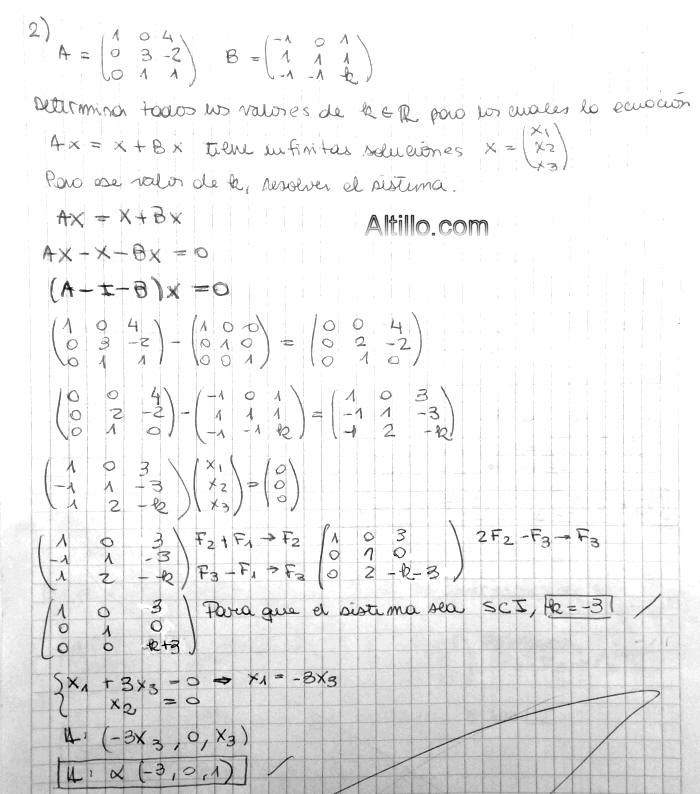 2)
A = ( 1 0 4 ; 0 3 -2 ; 0 1 1 )   B = ( -1 0 1 ; 1 1 1 ; -1 -1 k )
Determinar todos los valores de k ∈ ℝ para los cuales la ecuación
Ax = x + Bx tiene infinitas soluciones x = ( x1 ; x2 ; x3 )
Para ese valor de k, resolver el sistema.
AX = X + BX
Altillo.com
AX - X - BX = 0
(A - I - B) X = 0
( 1 0 4 ; 0 3 -2 ; 0 1 1 ) - ( 1 0 0 ; 0 1 0 ; 0 0 1 ) = ( 0 0 4 ; 0 2 -2 ; 0 1 0 )
( 0 0 4 ; 0 2 -2 ; 0 1 0 ) - ( -1 0 1 ; 1 1 1 ; -1 -1 k ) = ( 1 0 3 ; -1 1 -3 ; 1 2 -k )
( 1 0 3 ; -1 1 -3 ; 1 2 -k ) ( x1 ; x2 ; x3 ) = ( 0 ; 0 ; 0 )
( 1 0 3 ; -1 1 -3 ; 1 2 -k ) F2 + F1 → F2 F3 - F1 → F3 ( 1 0 3 ; 0 1 0 ; 0 2 -k-3 ) 2F2 - F3 → F3
( 1 0 3 ; 0 1 0 ; 0 0 k+3 ) Para que el sistema sea SCI, k = -3
{ x1 + 3x3 = 0 ⇒ x1 = -3x3
x2 = 0
: (-3x3, 0, x3)
: α (-3, 0, 1)